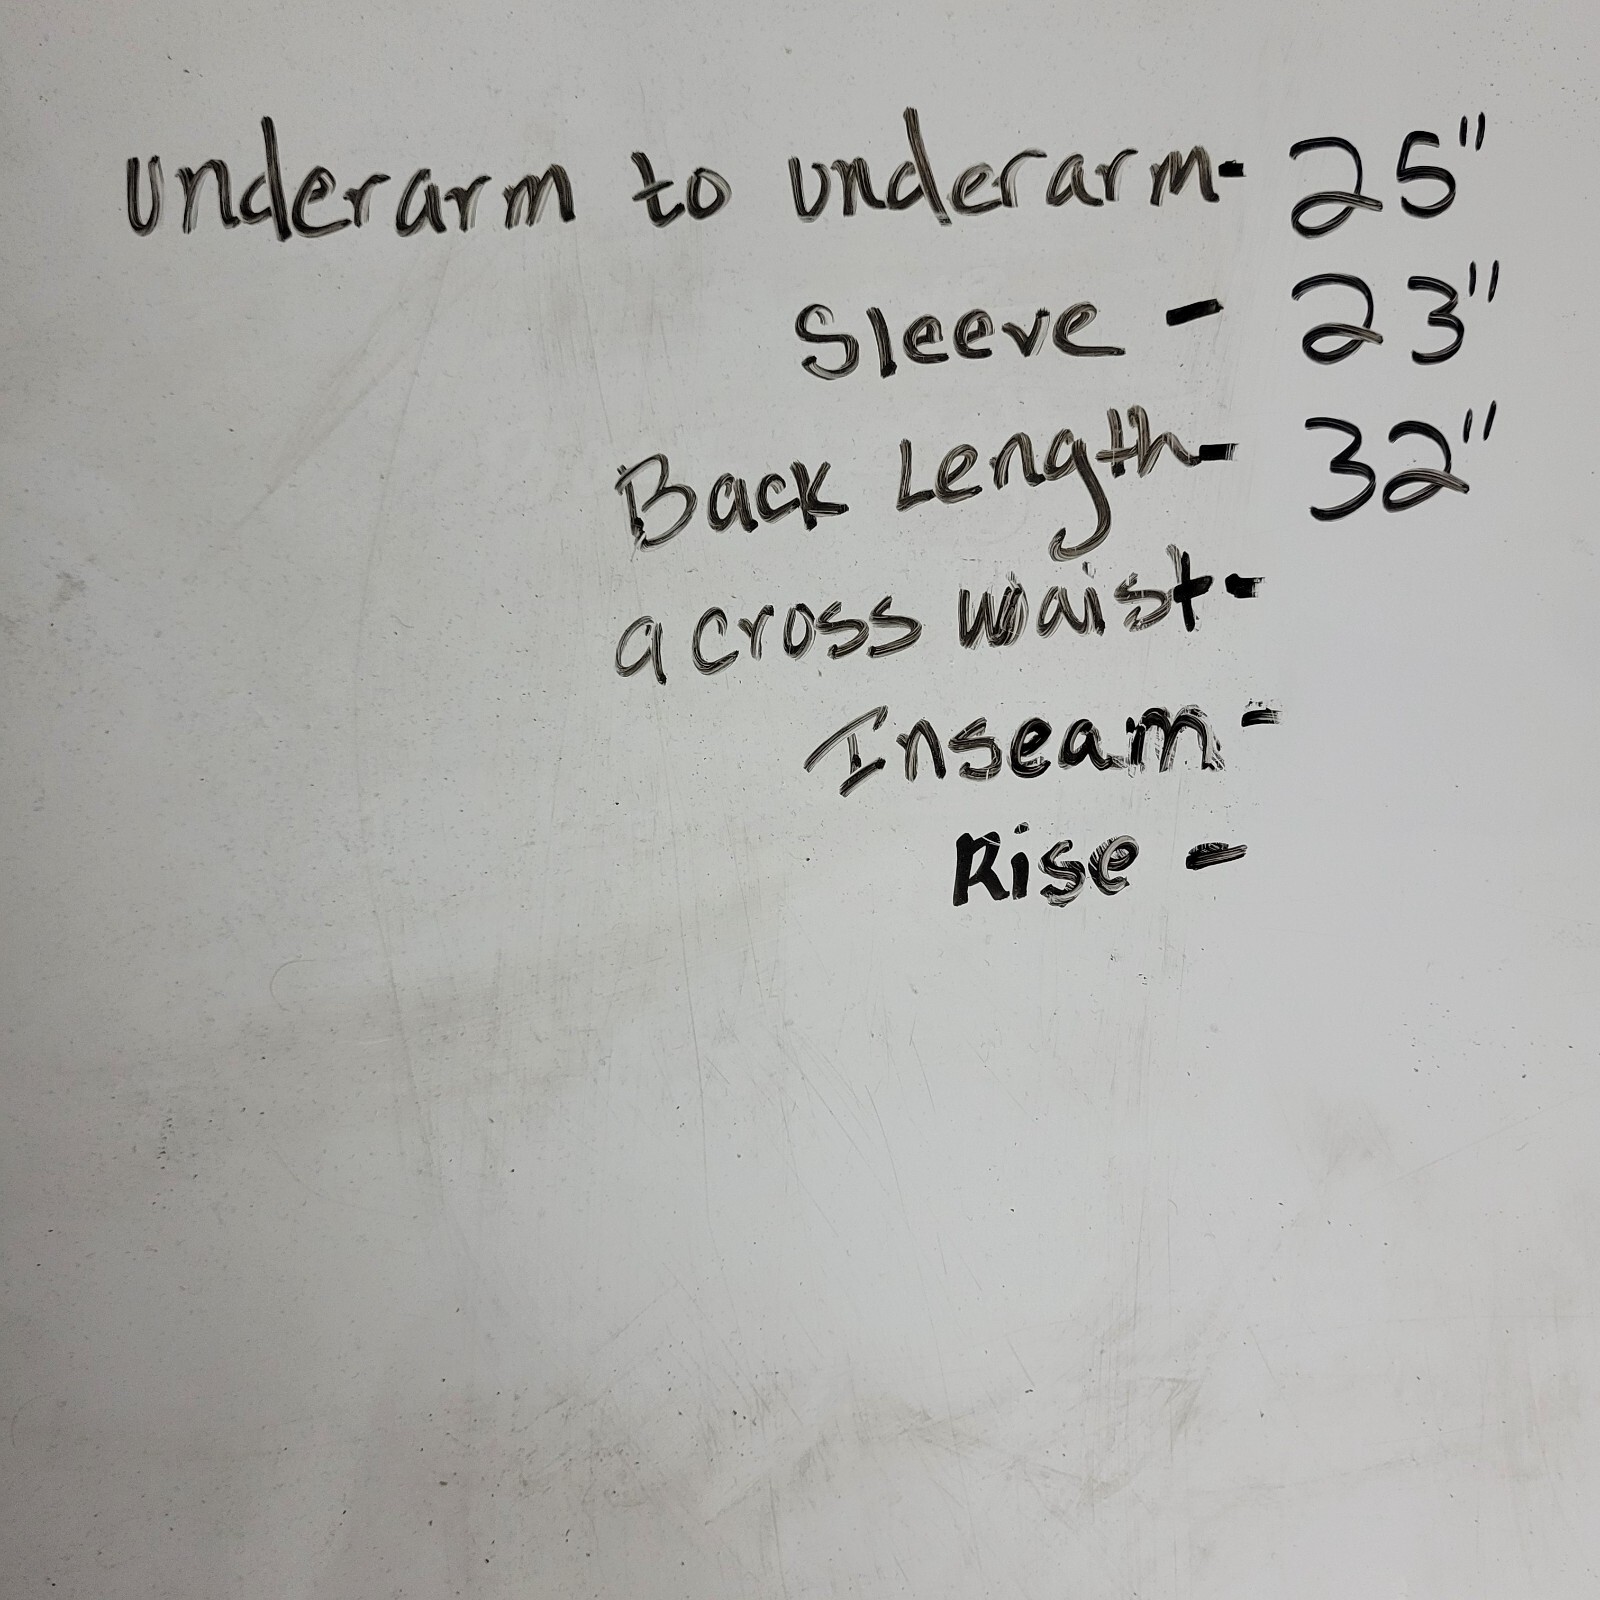 underarm to underarm- 25"
Sleeve - 23"
Back Length- 32"
across waist-
Inseam -
Rise -